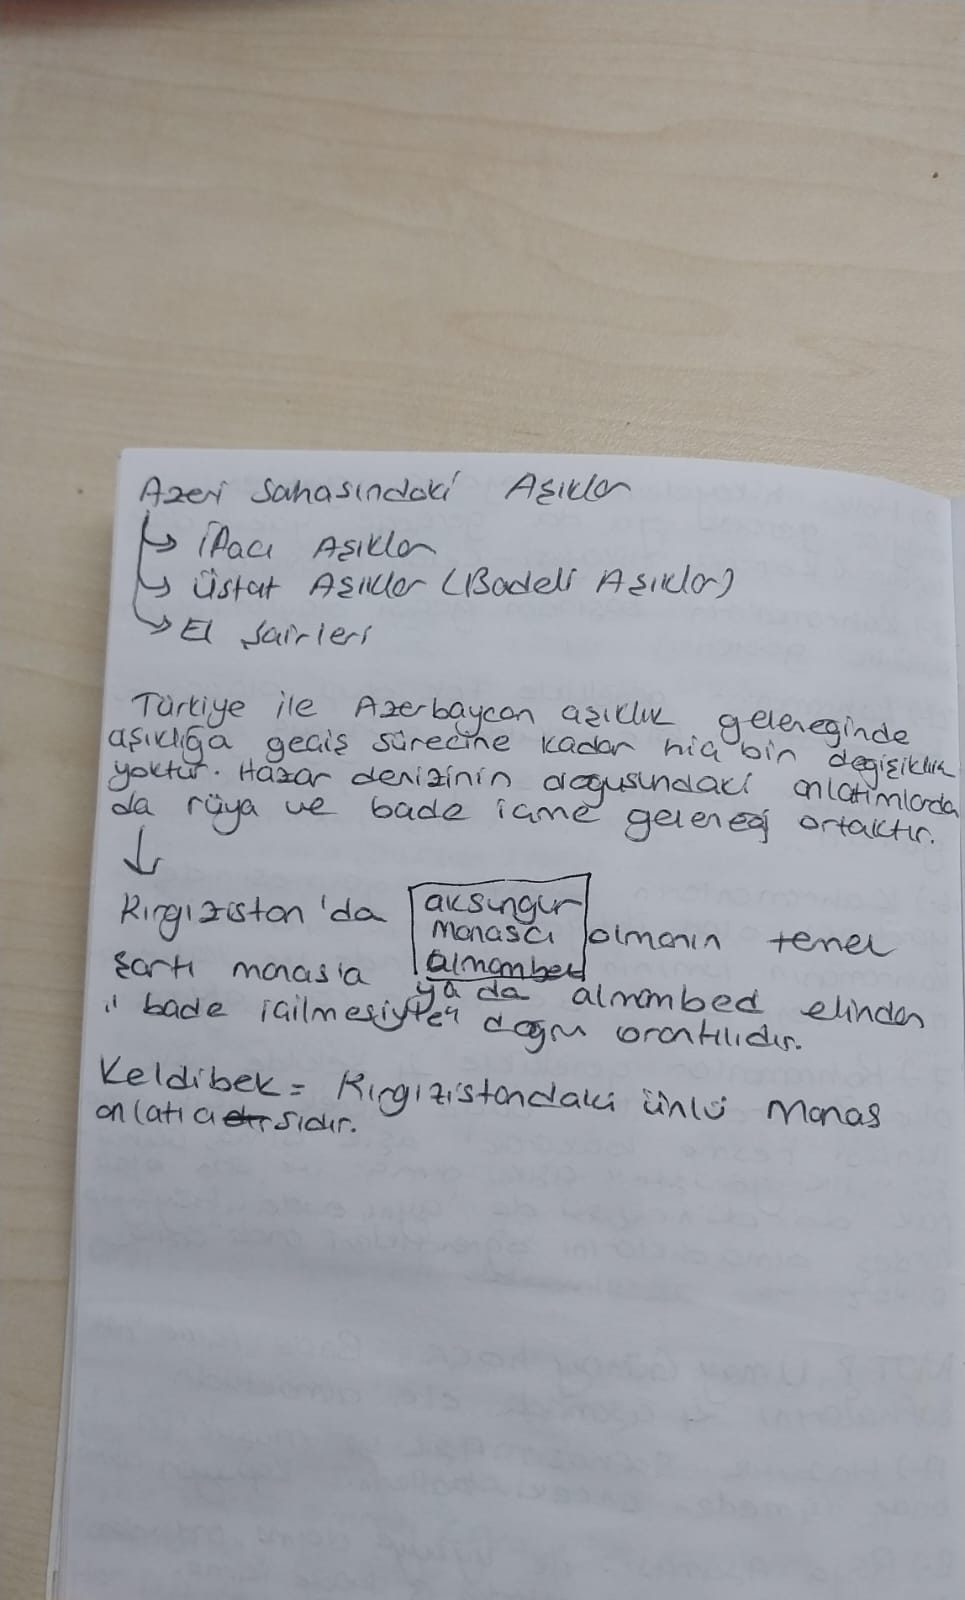 Azeri Sahasındaki Aşıklar
İfacı Aşıklar
Üstat Aşıklar (Badeli Aşıklar)
El Şairleri
Türkiye ile Azerbaycan aşıklık geleneginde
aşıklığa geçiş sürecine kadar hiç bir değişiklik
yoktur. Hazar denizinin doğusundaki anlatımlarda
da rüya ve bade içme geleneği ortaktır.
Kırgızistan'da aksungur
manascı olmanın temel
şartı manasla almambed
ya da almambed elinden
bade içilmesiyle doğru orantılıdır.
Keldibek = Kırgızistandaki ünlü Manas
anlatıcısıdır.